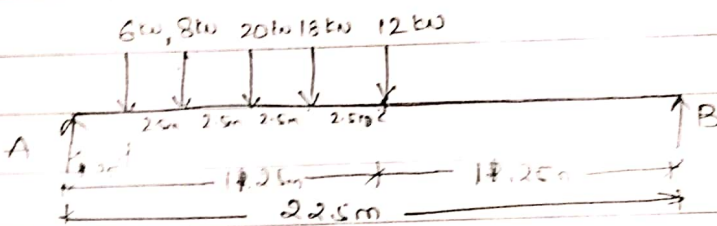 6kN, 8kN 20kN 18kN 12kN
2.5m 2.5m 2.5m 2.5m C
A B
11.25m 11.25m
22.5m